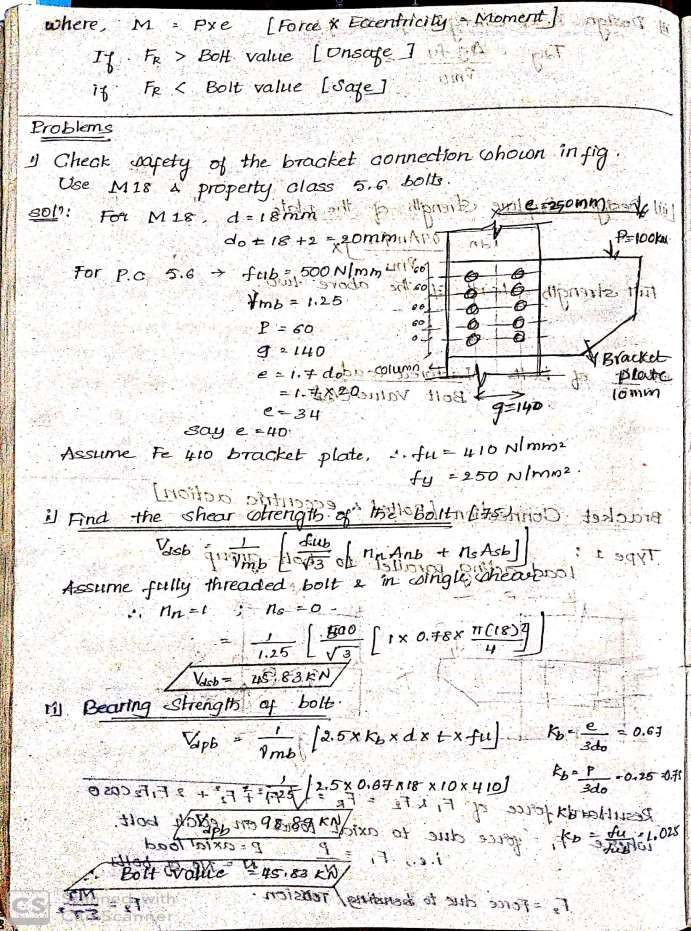 where, M = Pxe [Force x Eccentricity = Moment.]
If FR > Bolt value [Unsafe]
if FR < Bolt value [Safe]
Problems
1) Check safety of the bracket connection shown in fig.
Use M18 & property class 5.6 bolts.
soln: For M18, d = 18mm
do = 18 +2 = 20mm
For P.C 5.6 → fub = 500 N/mm
γmb = 1.25
P = 60
g = 140
e = 1.7 do
= 1.7 x 20
e = 34
say e = 40
e = 250mm
P=100KN
60
60
60
60
column
Bracket
plate
10mm
g=140
Assume Fe 410 bracket plate, ∴ fu = 410 N/mm2
fy = 250 N/mm2.
i) Find the shear strength of the bolt
Vdsb = 1/γmb [fub/√3 [nn Anb + ns Asb]]
Assume fully threaded bolt & in single shear
∴ nn = 1 ; ns = 0
= 1/1.25 [500/√3 [1x 0.78x π(18)2/4]]
Vdsb = 45.83 KN
ii) Bearing Strength of bolt.
Vdpb = 1/γmb [2.5 x Kb x d x t x fu]
Kb = e/3do = 0.67
Kb = P/3do - 0.25 = 0.75
= 1/1.25 [2.5 x 0.67 x 18 x 10 x 410]
Kb = fu/fub = 1.025
Vdpb = 98.89 KN
∴ Bolt value = 45.83 KN
CS Scanned with
CamScanner